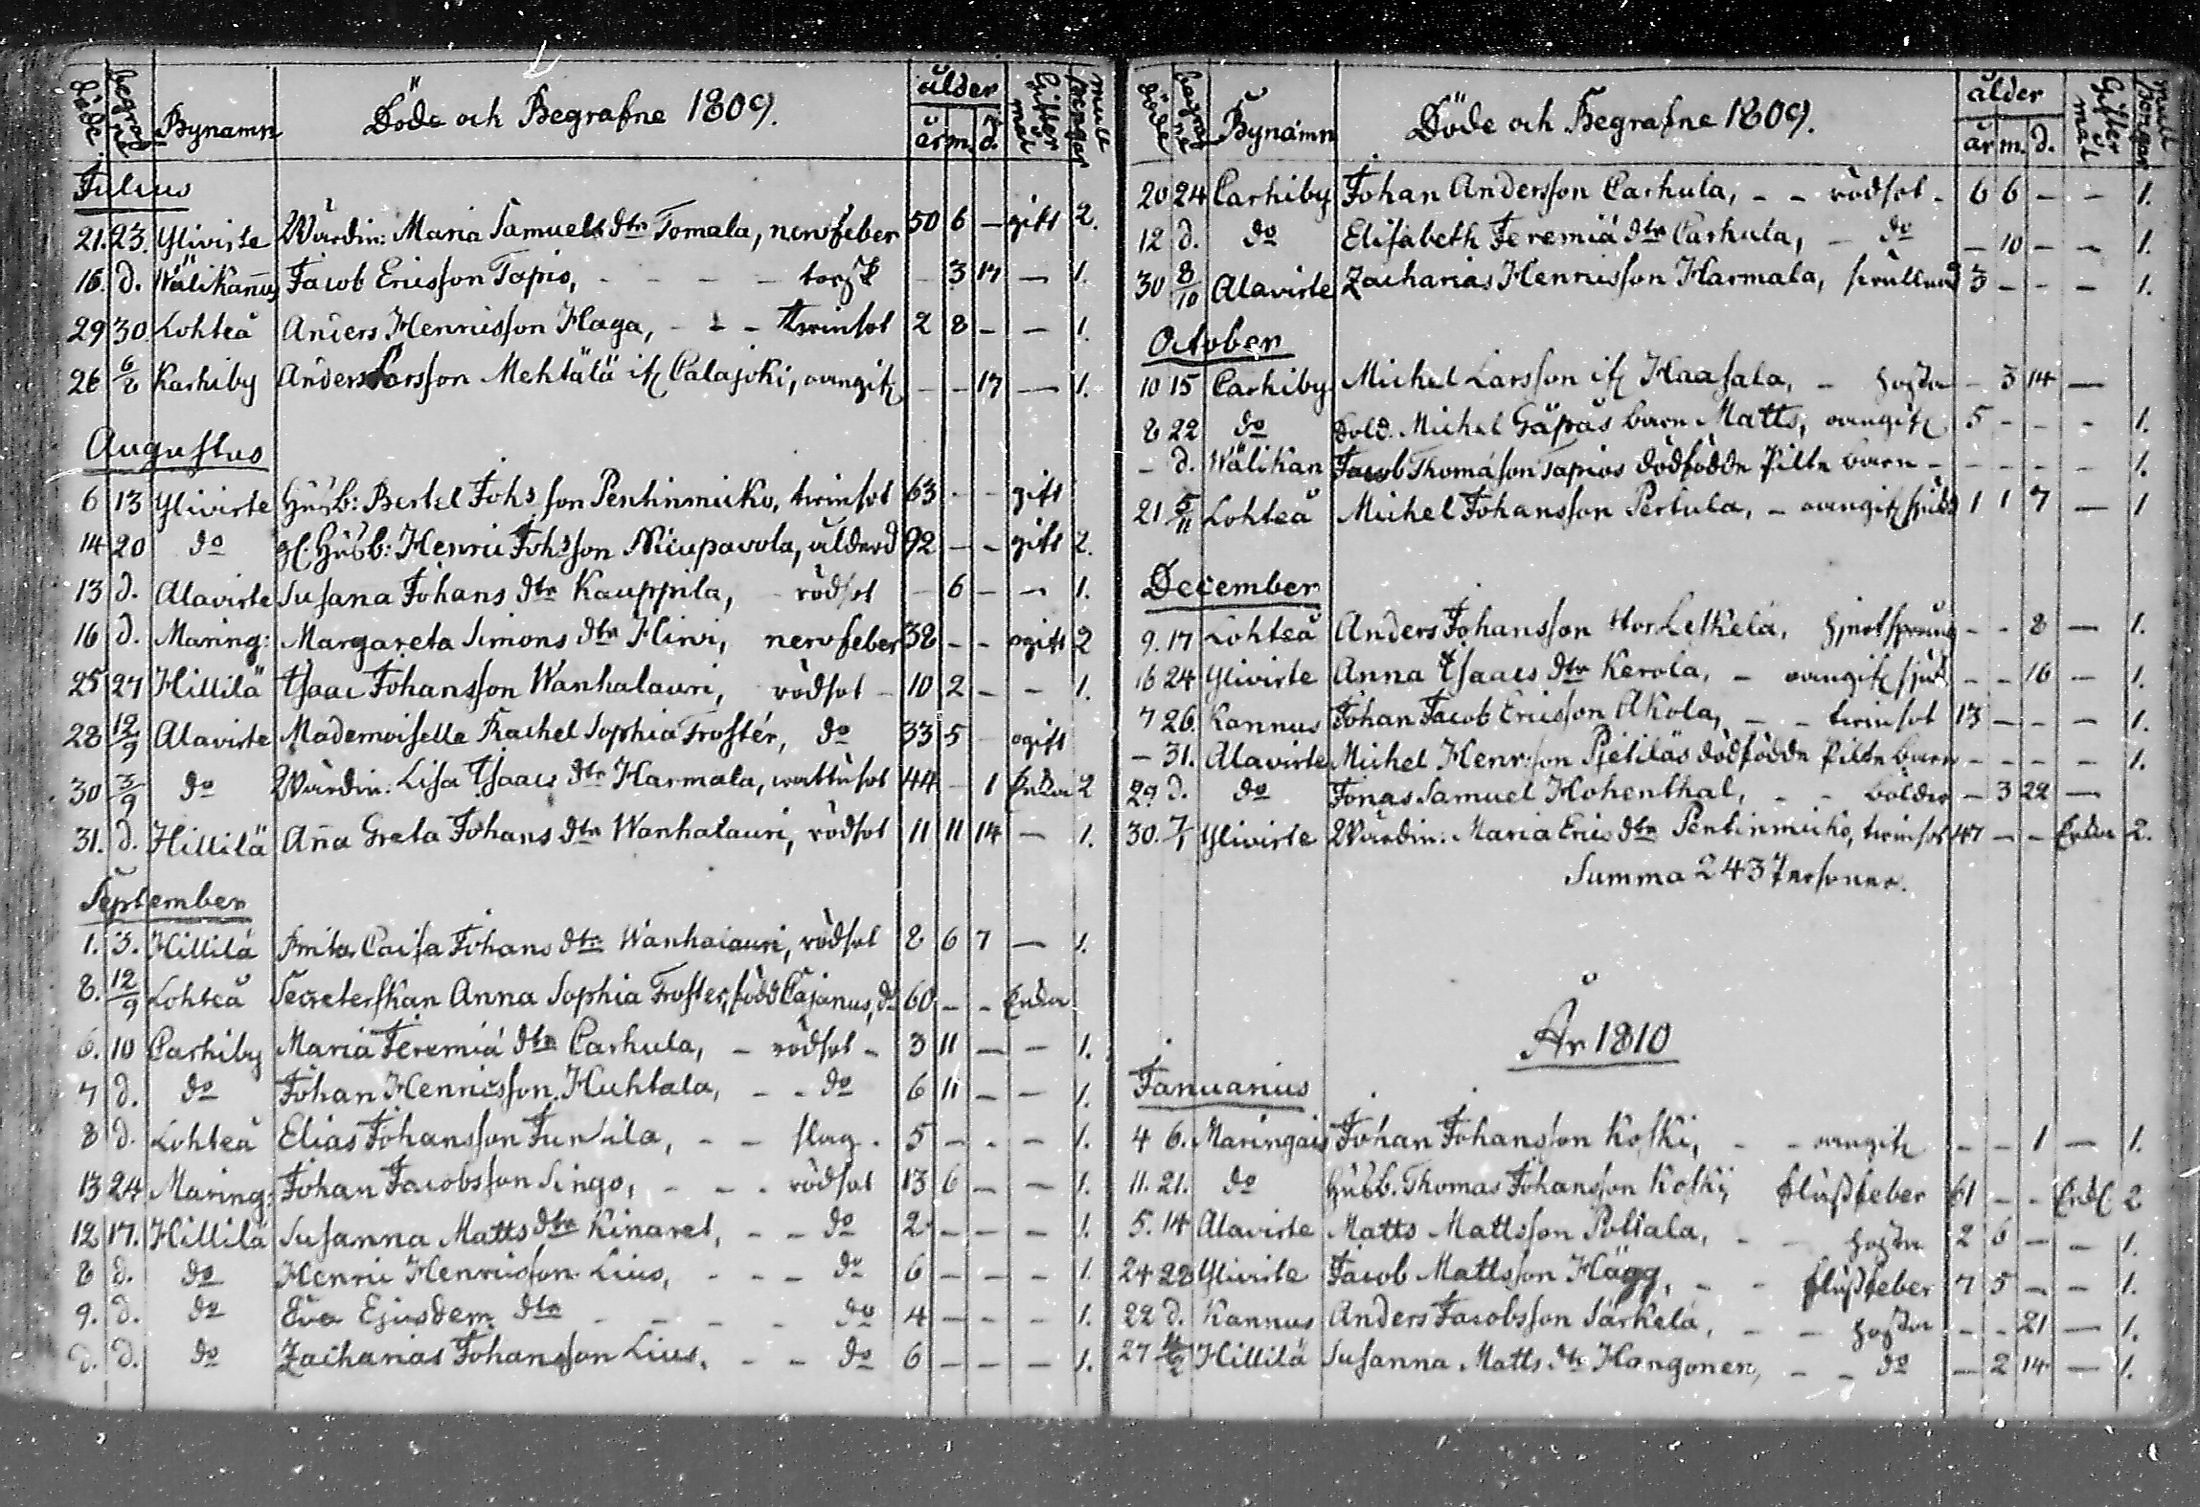 döde begrafne Bynamn Döde och Begrafne 1809. ålder år m. d. Gifter mål mull penngar
Julius
21. 23. Ylivirte Wärdin: Maria Samuels dtr Tomala, nervfeber 50 6 — gift 2.
16. d. Wälikannus Jacob Ericsson Tapio, - - - - 3 17 — 1.
29 30. Lohteå Anders Henricsson Haga, - - - twinsot 2 8 - — 1.
26 6/8 Karhiby Anders Larsson Mehtälä if Calajoki, oangif - - 17 — 1.
Augustus
6 13 Ylivirte Husb: Bertel Johs son Pentinmicko, twinsot 63 - - gift
14 20 do gl. Husb: Henric Johsson Nicupavola, ålderd 92 - - gift 2.
13 d. Alavirte Susana Johans dtr Kauppila, - rödsot - 6 - — 1.
16 d. Maring: Margareta Simons dtr Hirvi, nervfeber 38 - - ogift 2
25 27 Hillilä Isaac Johansson Wanhalauri, rödsot - 10 2 - - 1.
28 12/9 Alavirte Mademoiselle Rachel Sophia Frostér, do 33 5 - ogift
30 3/9 do Wärdin. Lisa Isaacs dtr Harmala, wattusot 44 - 1 Enka 2
31. d. Hillilä Aña Greta Johans dtr Wanhalauri, rödsot 11 11 14 — 1.
September
1. 3. Hillilä Brita Caisa Johans dtr Wanhalauri, rödsot 8 6 7 — 1.
8. 12/9 Lohteå Secreterskan Anna Sophia Froster, född Cajanus, do 60 - - Enka
6. 10 Carhiby Maria Jeremiä dtr Carhula, - rödsot - 3 11 — — 1.
7 d. do Johan Henricsson Huhtala, - - do 6 11 — — 1.
8 d. Lohteå Elias Johansson Juntila, - - slag. 5 - - — 1.
13 24 Maring: Johan Jacobsson Singo, - - - rödsot 13 6 — — 1.
12 17. Hillilä Susanna Matts dtr Kinaret, - - do 2 - — — 1.
8 d. do Henric Henricsson Lius, - - - do 6 — — — 1.
9. d. do Eva Ejusdem dtr - - - - do 4 — - - 1.
d. d. do Zacharias Johansson Lius, - - do 6 — — — 1.
döde begrafne Bynamn Döde och Begrafne 1809. ålder år m. d. Gifter mål mull penngar
20 24 Carhiby Johan Andersson Carhula, - - rödsot - 6 6 — - 1.
12 d. do Elisabeth Jeremiä dtr Carhula, - do — 10 — - 1.
30 8/10 Alavirte Zacharias Henricsson Harmala, 3 — — — 1.
October
10 15 Carhiby Michel Larsson if Haasala, - hosta - 3 14 —
8 22 do Sold. Michel Gäpäs barn Matts, oangif 5 - - - 1.
- d. Wälikan Jacob Thomasson Tapios dödfödde Pilte barn - - - - - 1.
21 5/11 Lohteå Michel Johansson Pertula, - oangif sjukd 1 1 7 — 1
December
9. 17 Lohteå Anders Johansson Hor.Letkelä, hjertsprång - - 8 — 1.
16 24 Ylivirte Anna Isaacs dtr Kerola, - oangif sjuk - - 16 — 1.
7 26. Kannus Johan Jacob Ericsson Akola, - - twinsot 13 — — - 1.
- 31. Alavirte Michel Henrsson Pjetiläs dödfödde Pilte barn - - - - 1.
29 d. do Jonas Samuel Hohenthal, - - bölder - 3 22 —
30. 7/1 Ylivirte Wärdin: Maria Erics dtr Pentinmicko, twinsot 47 — — Enka 2.
Summa 243 Personer.
År 1810
Januarius
4 6. Maringais Johan Johansson Koski, - - oangif - - 1 — 1.
11. 21. do Husb. Thomas Johansson Koski, flussfeber 61 - - Enkl 2
5. 14 Alavirte Matts Mattsson Poltala, - - hosta 2 6 — — 1.
24 28 Ylivirte Jacob Mattsson Hägg, - - flussfeber 7 5 — - 1.
22 d. Kannus Anders Jacobsson Särkelä, - - hosta - - 21 — 1.
27 Hillilä Susanna Matts dtr Hangonen, - - do — 2 14 — 1.